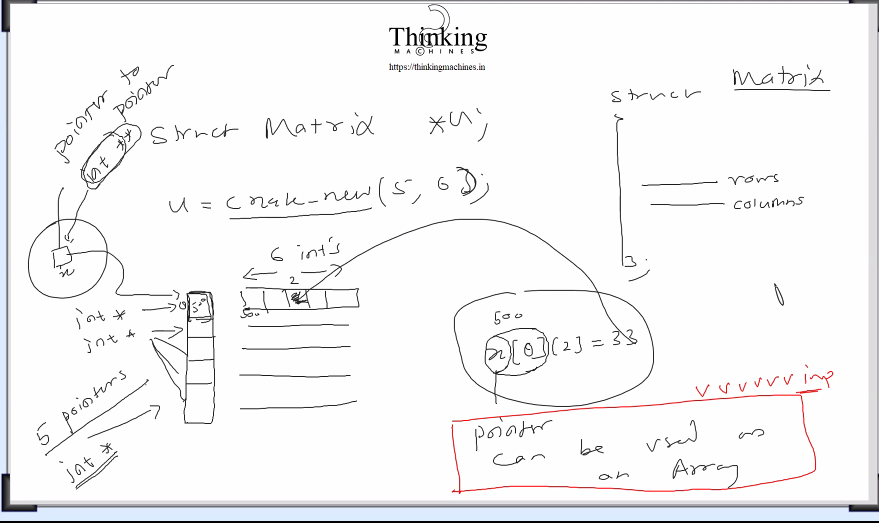 Thinking
MACHINES
https://thinkingmachines.in
pointer to
pointer
int **
struct Matrix *u;
u = create_new(5, 6);
struct Matrix
{
rows
columns
};
x
6 int's
2
int *
0
500
500
int *
5 pointers
int *
500
x[0][2] = 33
v v v v v v imp
pointer
can be used as
an Array